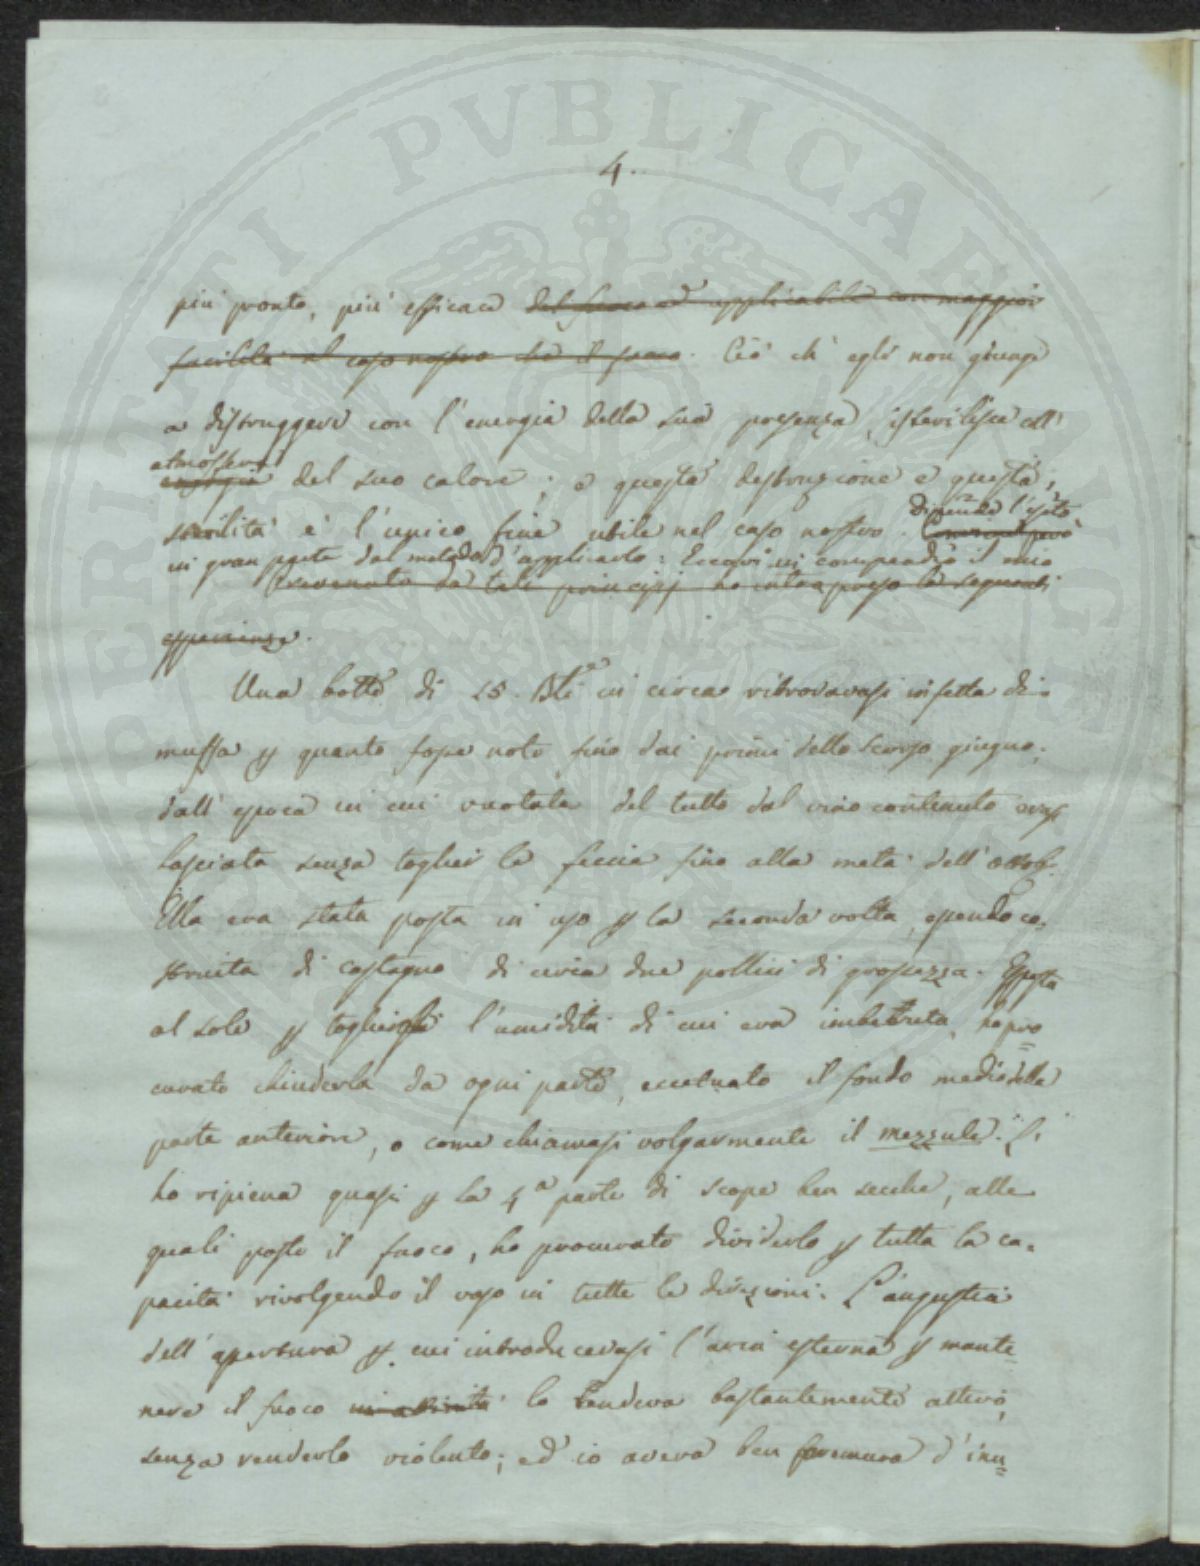 4.
più pronto, più efficace del fuoco ed applicabile con maggior
facilità al caso nostro che il fuoco. Ciò ch' egli non giunge
a distruggere con l'energia della sua presenza, isterilisce coll'
atmosfera
energia del suo calore; e questa destruzione e questa
sterilità è l'unico fine utile nel caso nostro.
dipende l'esito
in gran parte dal metodo d'applicarlo: Eccovi in compendio il mio
Prevenuto da tali principj ho intrapreso le seguenti
esperienze.
Una botte di 15 in circa ritrovavasi infetta di
muffa p quanto fosse noto fino dai primi dello scorso giugno,
dall' epoca in cui vuotata del tutto dal vino contenuto erasi
lasciata senza toglier la feccia fino alla metà dell' ottob.
Ella era stata posta in uso p la seconda volta, essendo co=
struita di castagno di circa due pollici di grossezza. Esposta
al sole p togliergli l'umidità di cui era imbevuta, ho pro
curato chiuderla da ogni parte, eccetuato il fondo medio della
parte anteriore, o come chiamasi volgarmente il mezzule.
ho ripiena quasi p la 4a parte di scope ben secche, alle
quali posto il fuoco, ho procurato dividerlo p tutta la ca=
pacità rivolgendo il vaso in tutte le direzioni. L'angustia
dell' apertura p cui introducevasi l'aria esterna p mante=
nere il fuoco in attività lo rendeva bastantemente attivo,
senza renderlo violento; ed io aveva ben premura d'inu=